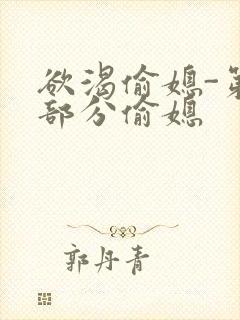 欲渴偷媳-第
部分偷媳
郭丹青